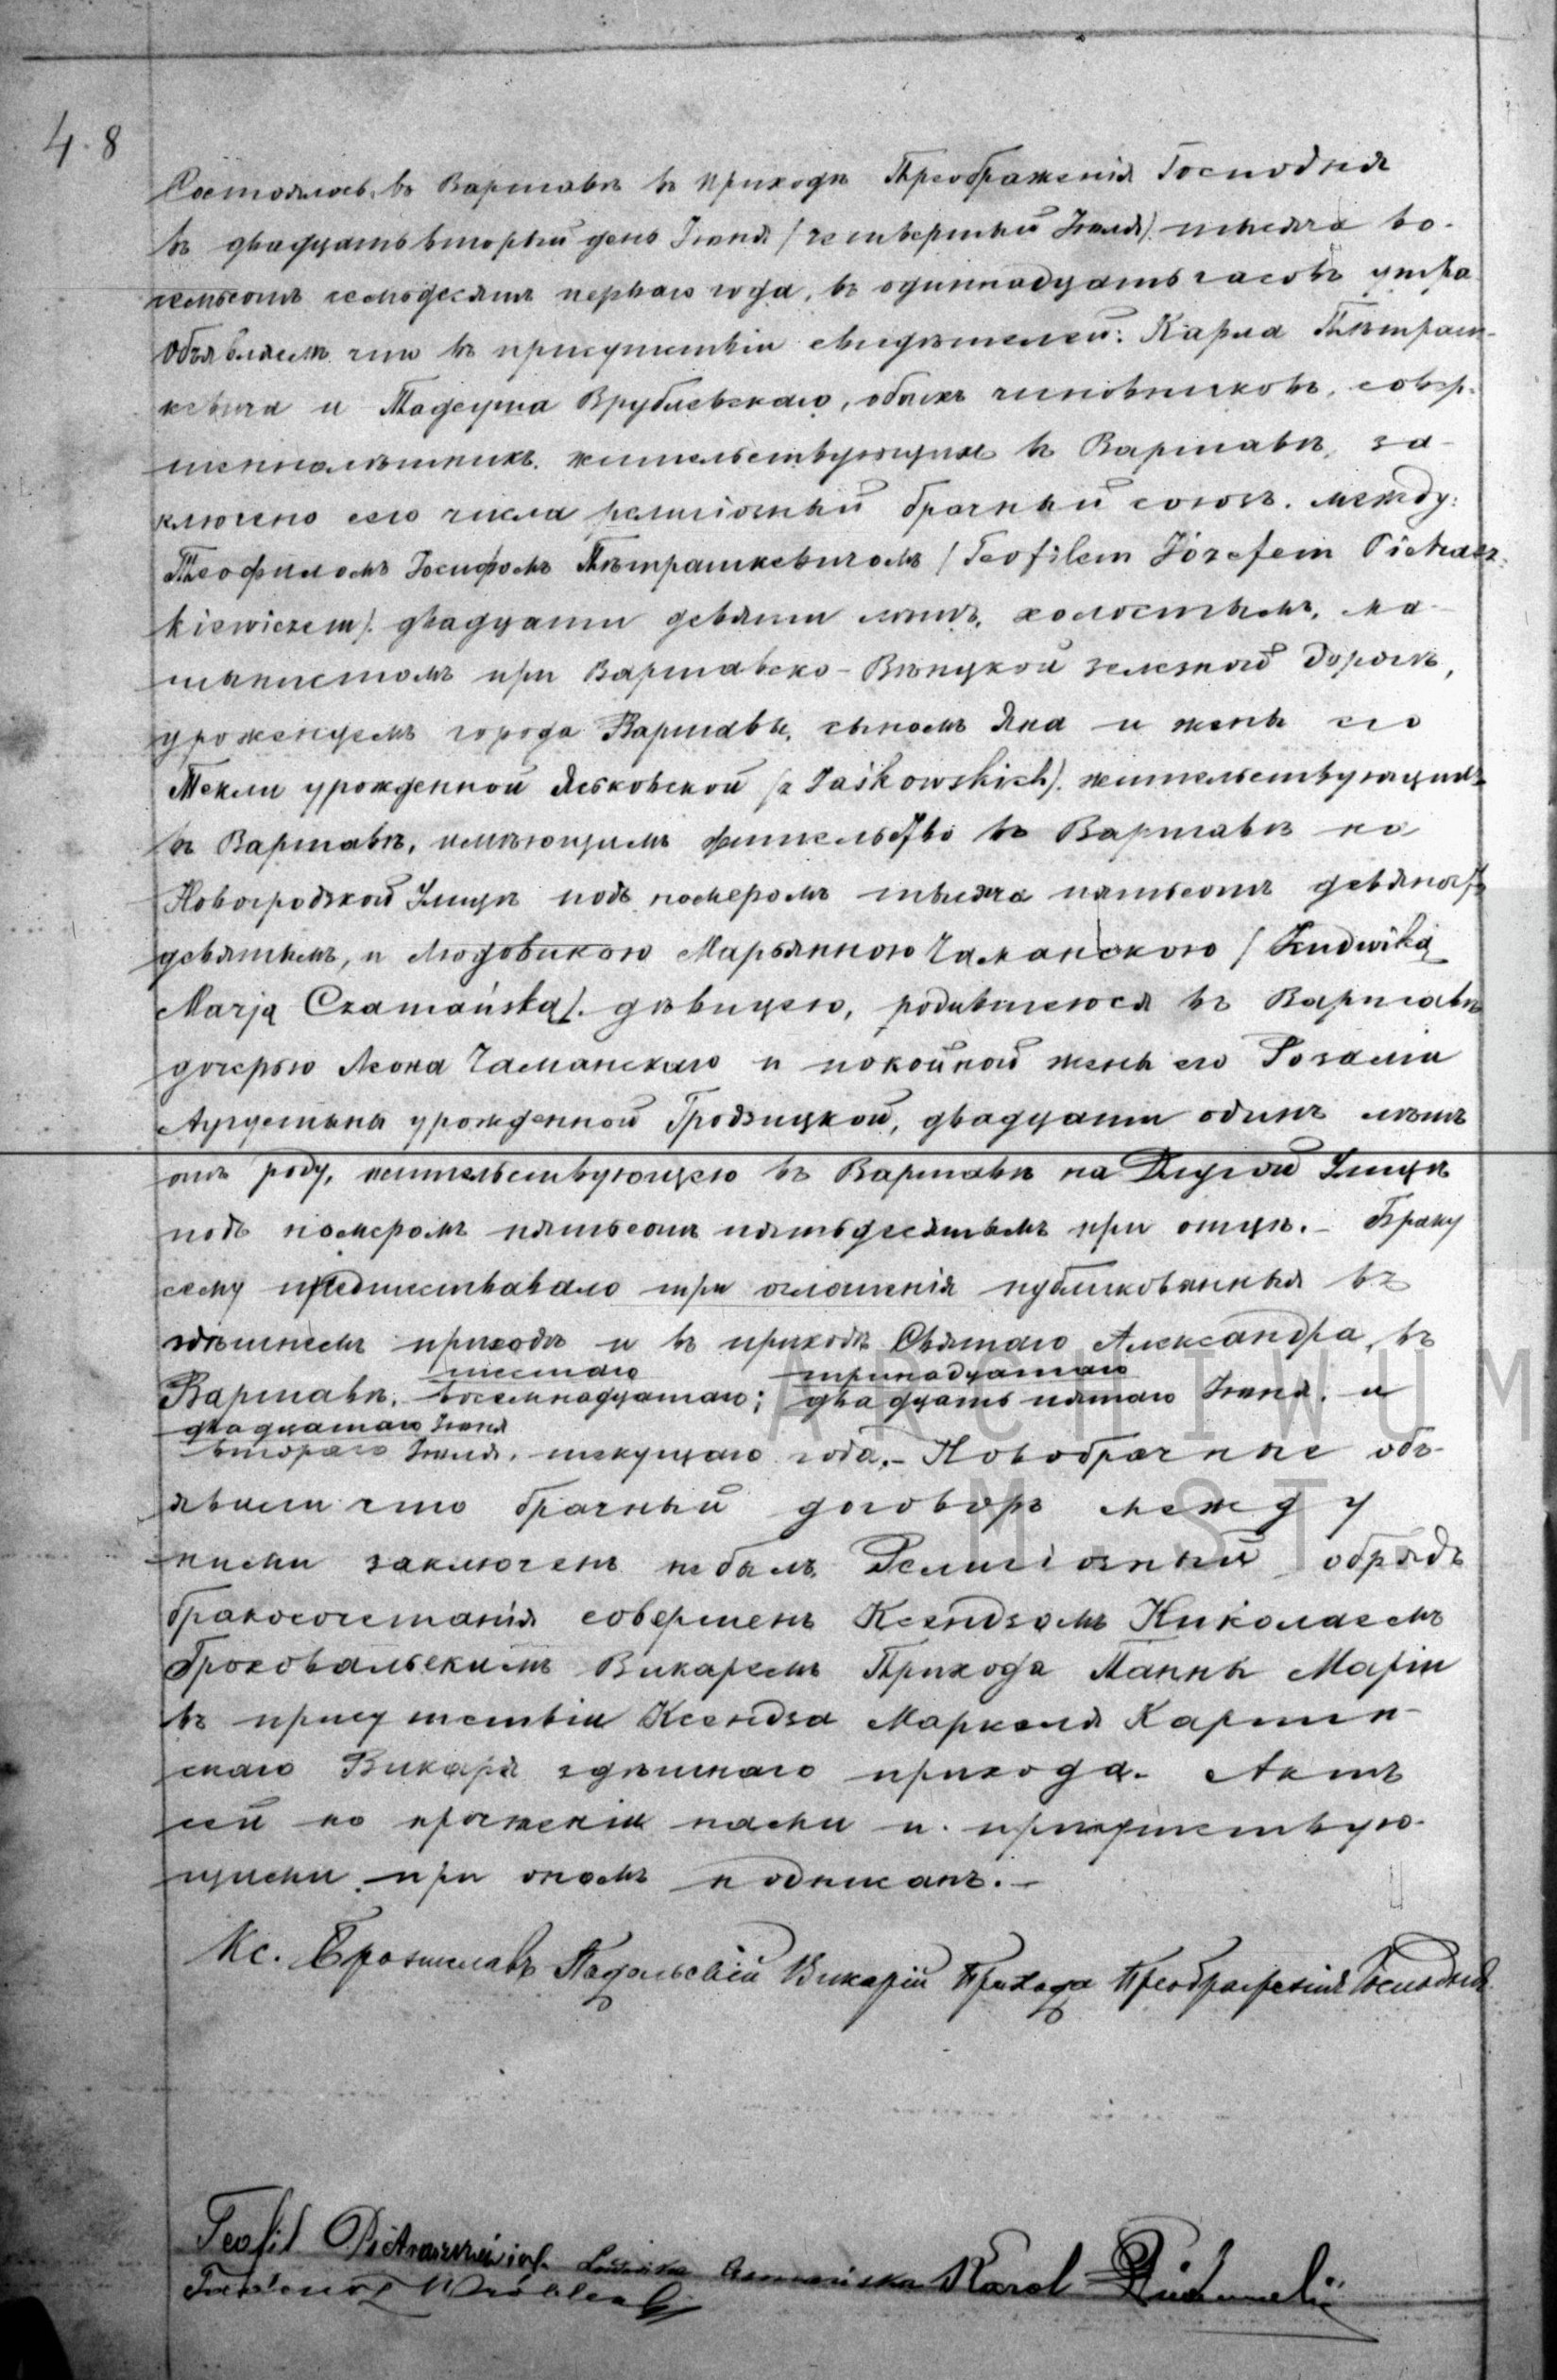 48
Состоялось въ Варшавѣ въ приходѣ Преображенія Господня
въ двадцать вторый день Іюня (четвертый Іюля) тысяча во-
семьсотъ семьдесятъ перваго года, въ одиннадцать часовъ утра
Объявляемъ что въ присутствіи свидѣтелей: Карла Пѣтраш-
кевича и Тадеуша Врублевскаго, обоихъ чиновниковъ, совер-
шеннолѣтнихъ, жительствующихъ въ Варшавѣ, за-
ключено сего числа религіозный брачный союзъ. между:
Теофиломъ Іосифомъ Пѣтрашкевичомъ (Teofilem Józefem Pietrasz-
kiewiczem). двадцати девяти лѣтъ, холостымъ, ма-
шинистомъ при Варшавско-Вѣнцкой железной дорогѣ,
уроженцемъ города Варшавы, сыномъ Яна и жены его
Текли урожденной Яськовской (z Jaśkowskich). жительствующихъ
въ Варшавѣ, имѣющимъ жительство въ Варшавѣ по
Новогродзкой Улицѣ подъ номеромъ тысяча пятьсотъ девяносто
девятымъ, и Людовикою Марьянною Чаманскою (Ludwiką
Marją Czamańską). дѣвицею, родившеюся въ Варшавѣ
дочерью Леона Чаманскаго и покойной жены его Розаліи
Аугустыны урожденной Гродзицкой, двадцати одинъ лѣтъ
отъ роду, жительствующею въ Варшавѣ на Длугой Улицѣ
подъ номеромъ пятьсотъ пятьдесятымъ при отцѣ.- Браку
сему предшествовало три оглашенія публикованныя въ
здѣшнемъ приходѣ и въ приходѣ Святаго Александра, въ
шестаго тринадцатаго
Варшавѣ. восемнадцатаго; двадцать пятаго Іюня. и
двадцатаго Іюня
втораго Іюля. текущаго года.- Новобрачные объ-
явили что брачный договоръ между
ними заключенъ не былъ. Религіозный обрядъ
бракосочетанія совершенъ Ксендзомъ Николаемъ
Гроховальскимъ Викаремъ Прихода Панны Маріи
въ присутствіи Ксендза Маркеля
скаго Викарія здѣшняго прихода. Актъ
сей по прочтеніи нами и присутствую-
щими при ономъ подписанъ.-
Кс. Брониславъ Викарій Прихода Преображенія Господня
Teofil Pietraszkiewicz Ludwika Czamańska Karol
Tadeusz Wróblewski
ARCHIWUM
M. ST.